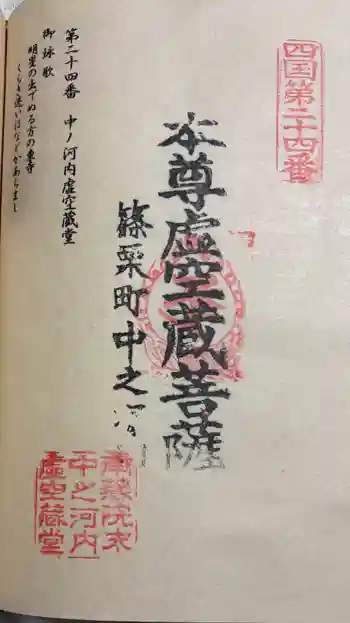 四国第二十四番
本尊虚空蔵菩薩
篠栗町中之河
第二十四番 中ノ河内虚空蔵堂
御詠歌
明星の出でぬる方の東寺
くらき迷いはなどかあらまし
南蔵院末
中之河内
虚空蔵堂